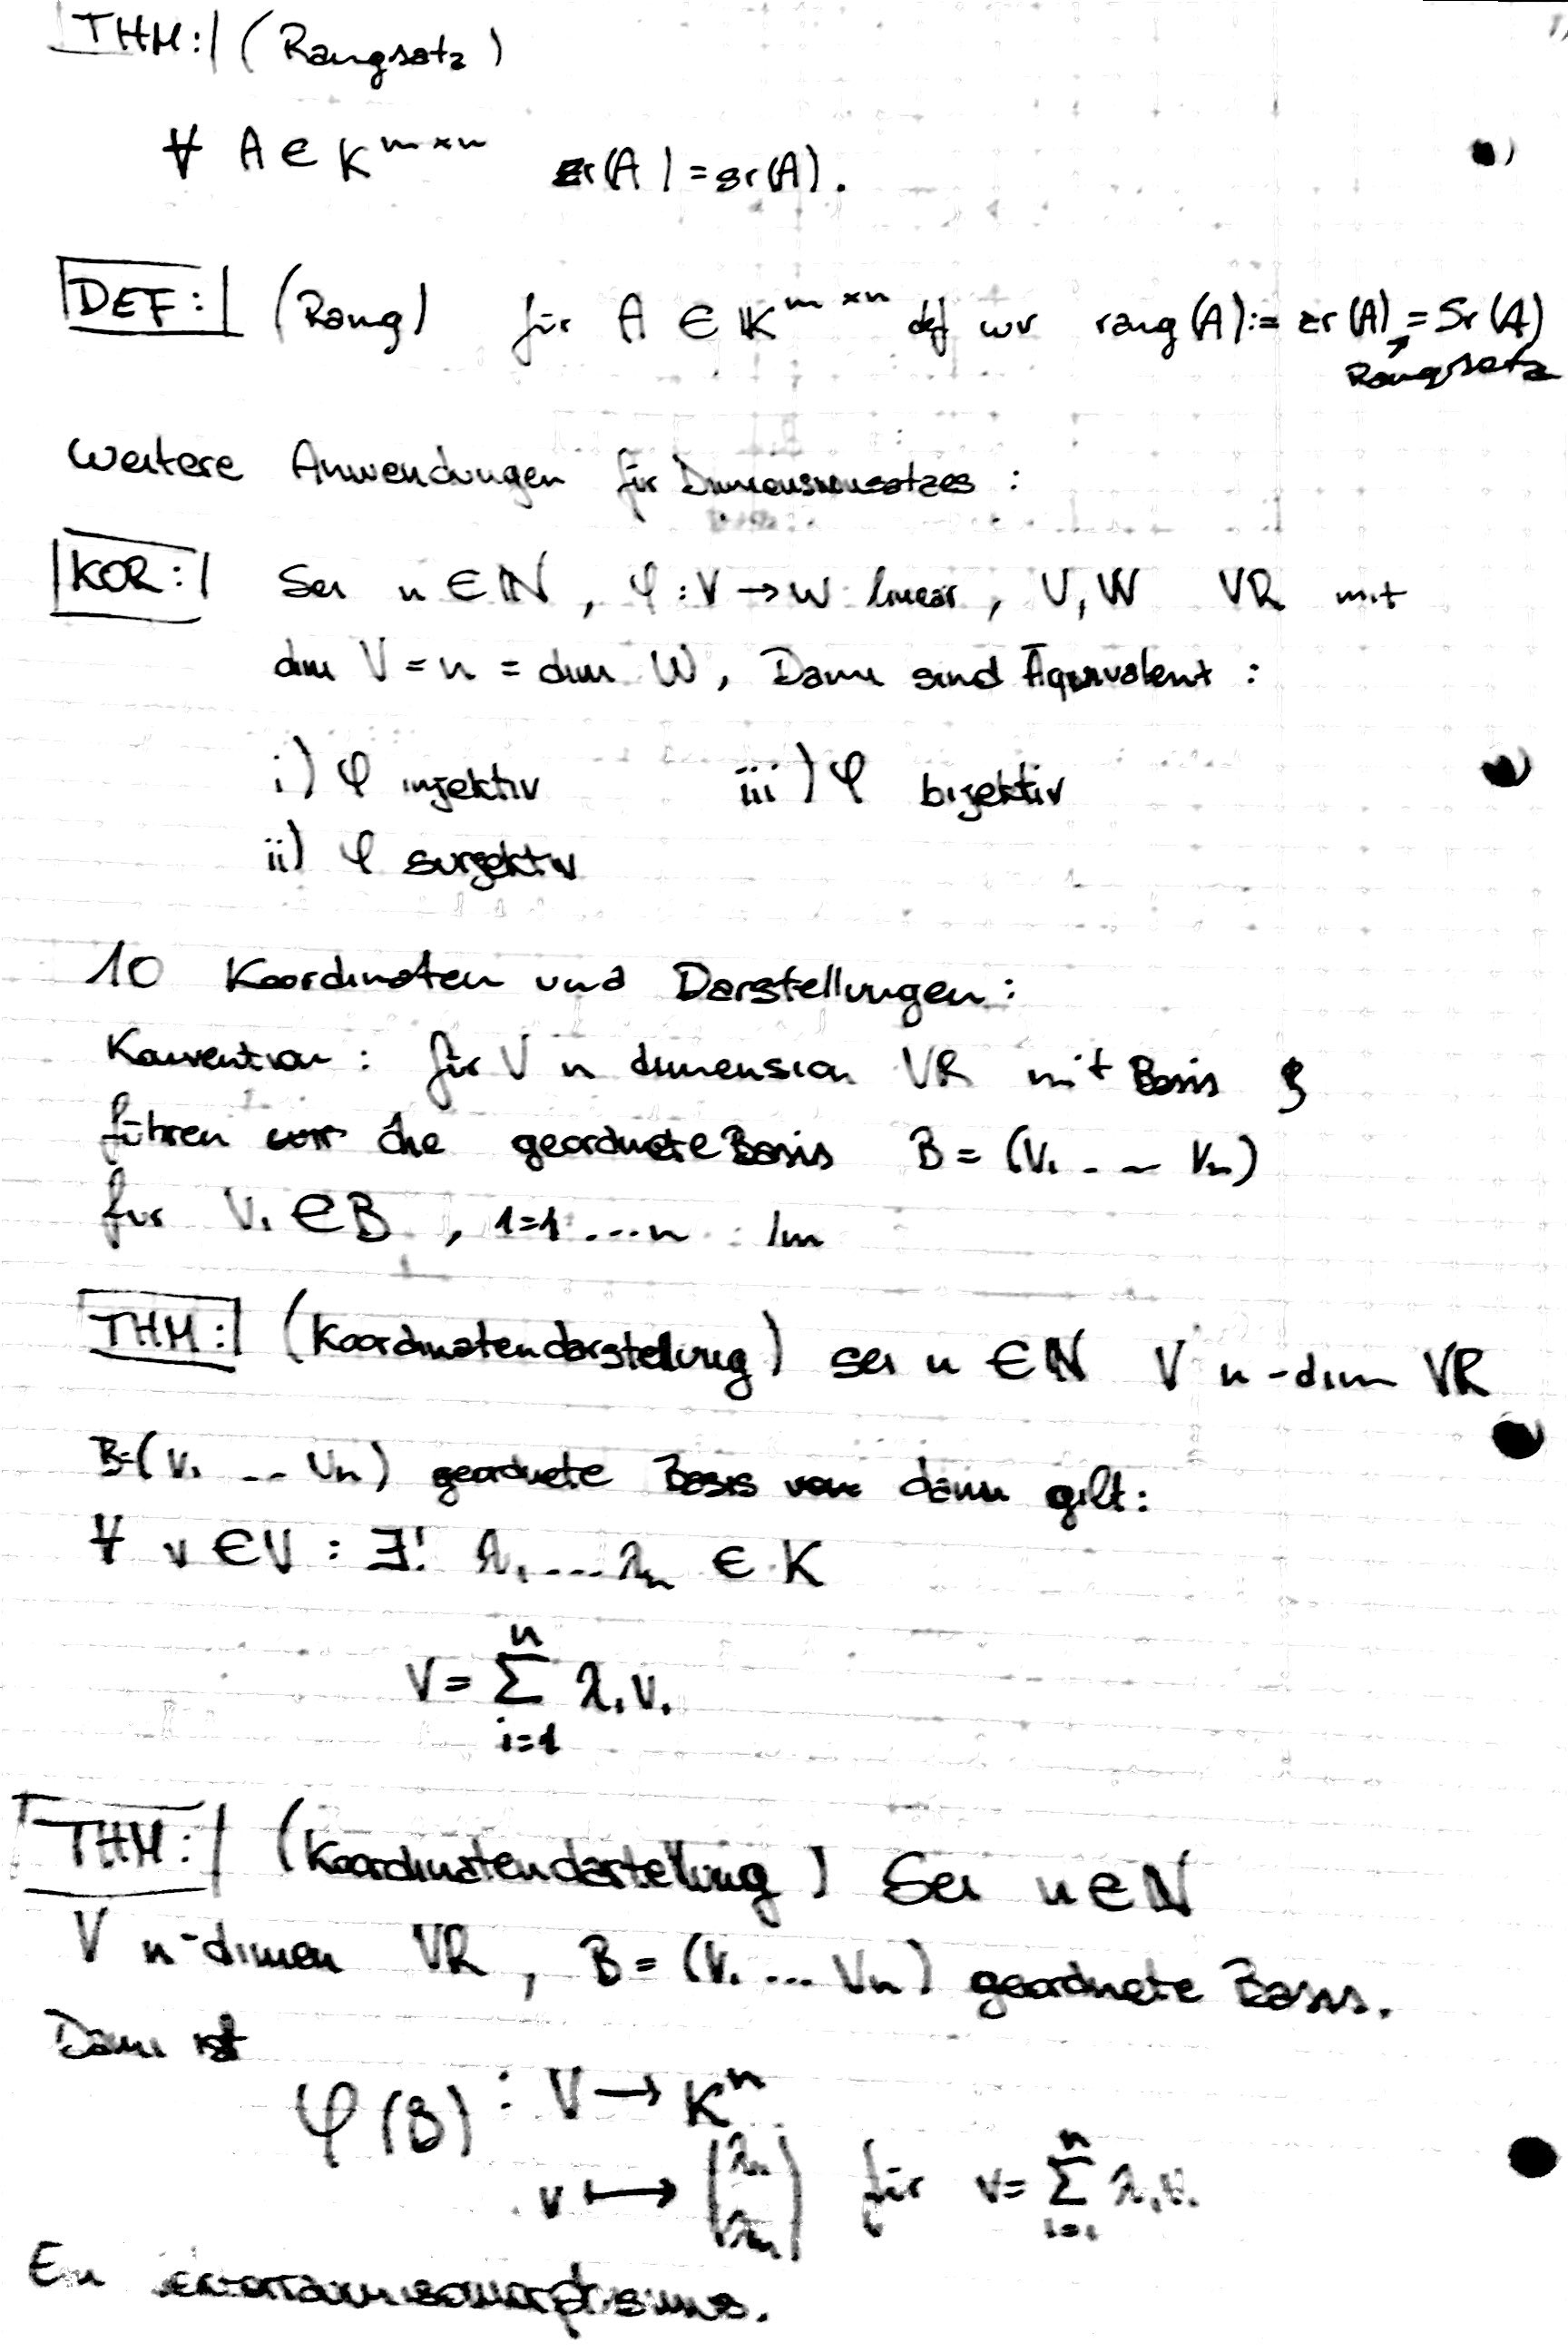 THM: (Rangsatz)
∀ A ∈ K^{m×n} zr(A) = sr(A).
DEF: (Rang) für A ∈ K^{m×n} def wir rang(A) := zr(A) = Sr(A)
Rangsatz
Weitere Anwendungen für Dimensionssatzes :
KOR: Sei n ∈ ℕ, φ : V → W linear, V, W VR mit
dim V = n = dim W, Dann sind Äquivalent :
i) φ injektiv iii) φ bijektiv
ii) φ surjektiv
10 Koordinaten und Darstellungen:
Konvention : für V n dimension VR mit Basis B
führen wir die geordnete Basis B = (v₁ ... vₙ)
für vᵢ ∈ B, i=1 ... n
THM: (Koordinatendarstellung) sei n ∈ ℕ V n-dim VR
B=(v₁ ... vₙ) geordnete Basis von dann gilt:
∀ v ∈ V : ∃! λ₁ ... λₙ ∈ K
v = ∑_{i=1}^{n} λᵢ vᵢ
THM: (Koordinatendartellung) Sei n ∈ ℕ
V n-dimen VR, B = (v₁ ... vₙ) geordnete Basis.
Dann ist
φ(B) : V → Kⁿ
v ↦ (λ₁ λₙ) für v = ∑_{i=1}^{n} λᵢ vᵢ
Ein